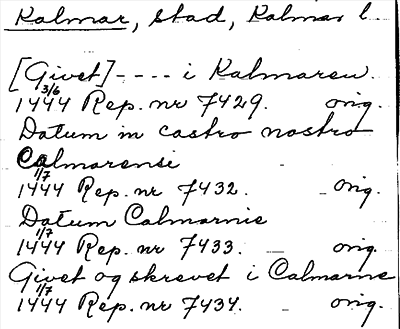 Kalmar, stad, Kalmar l.
[Givet] - - - - i Kalmaren.
3/6
1444 Rep. nr 7429. orig.
Datum in castro nostro
Calmarensi
1/7
1444 Rep. nr 7432. orig.
Datum Calmarnie
1/7
1444 Rep. nr 7433. orig.
Givet og skrevet i Calmarne
1/7
1444 Rep. nr 7434. orig.